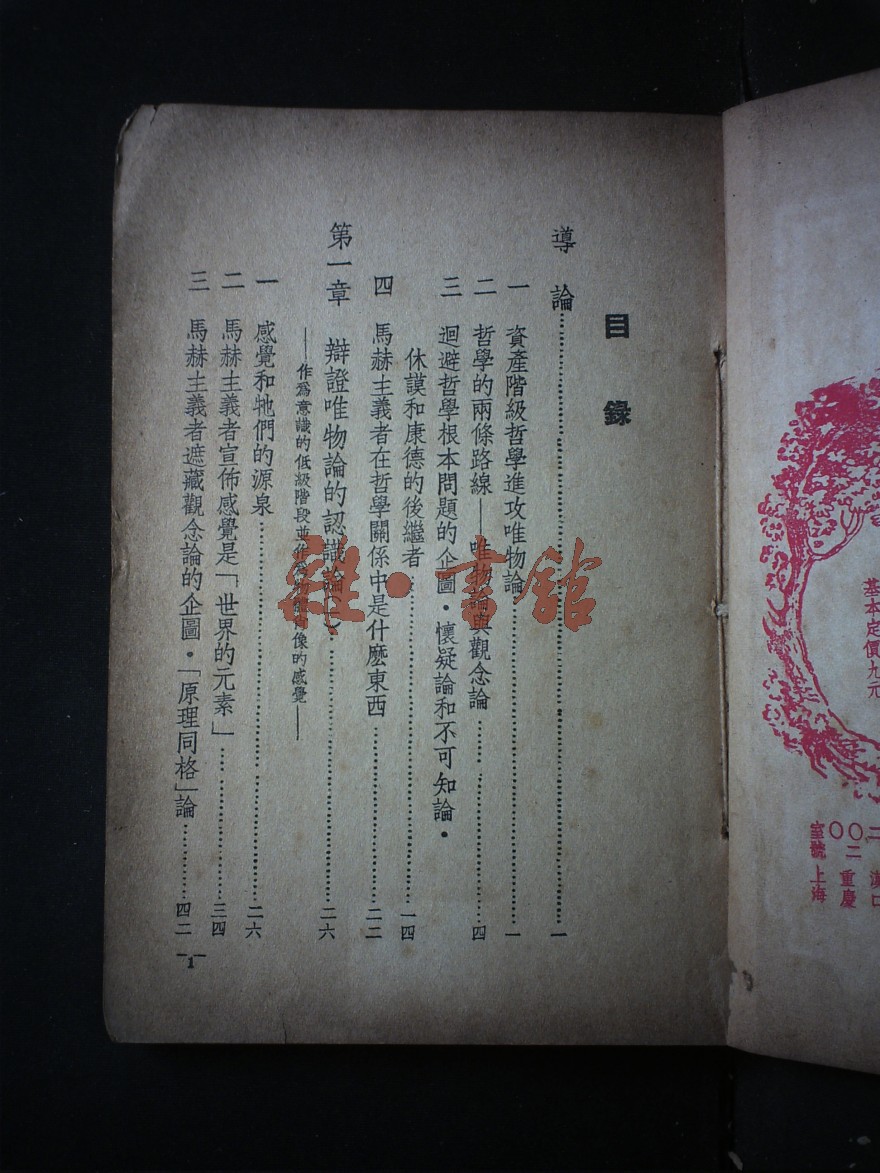 目錄
導論……一
一 資產階級哲學進攻唯物論……一
二 哲學的兩條路線——唯物論與觀念論……四
三 迴避哲學根本問題的企圖・懷疑論和不可知論・
休謨和康德的後繼者……一四
四 馬赫主義者在哲學關係中是什麼東西……二二
第一章 辯證唯物論的認識論(一)……二六
——作為意識的低級階段並作為物的肖像的感覺——
一 感覺和牠們的源泉……二六
二 馬赫主義者宣佈感覺是「世界的元素」……三四
三 馬赫主義者遮藏觀念論的企圖・「原理同格」論……四二
-1-
雜・書館
基本定價九元
漢口
二〇〇二 重慶
室號 上海